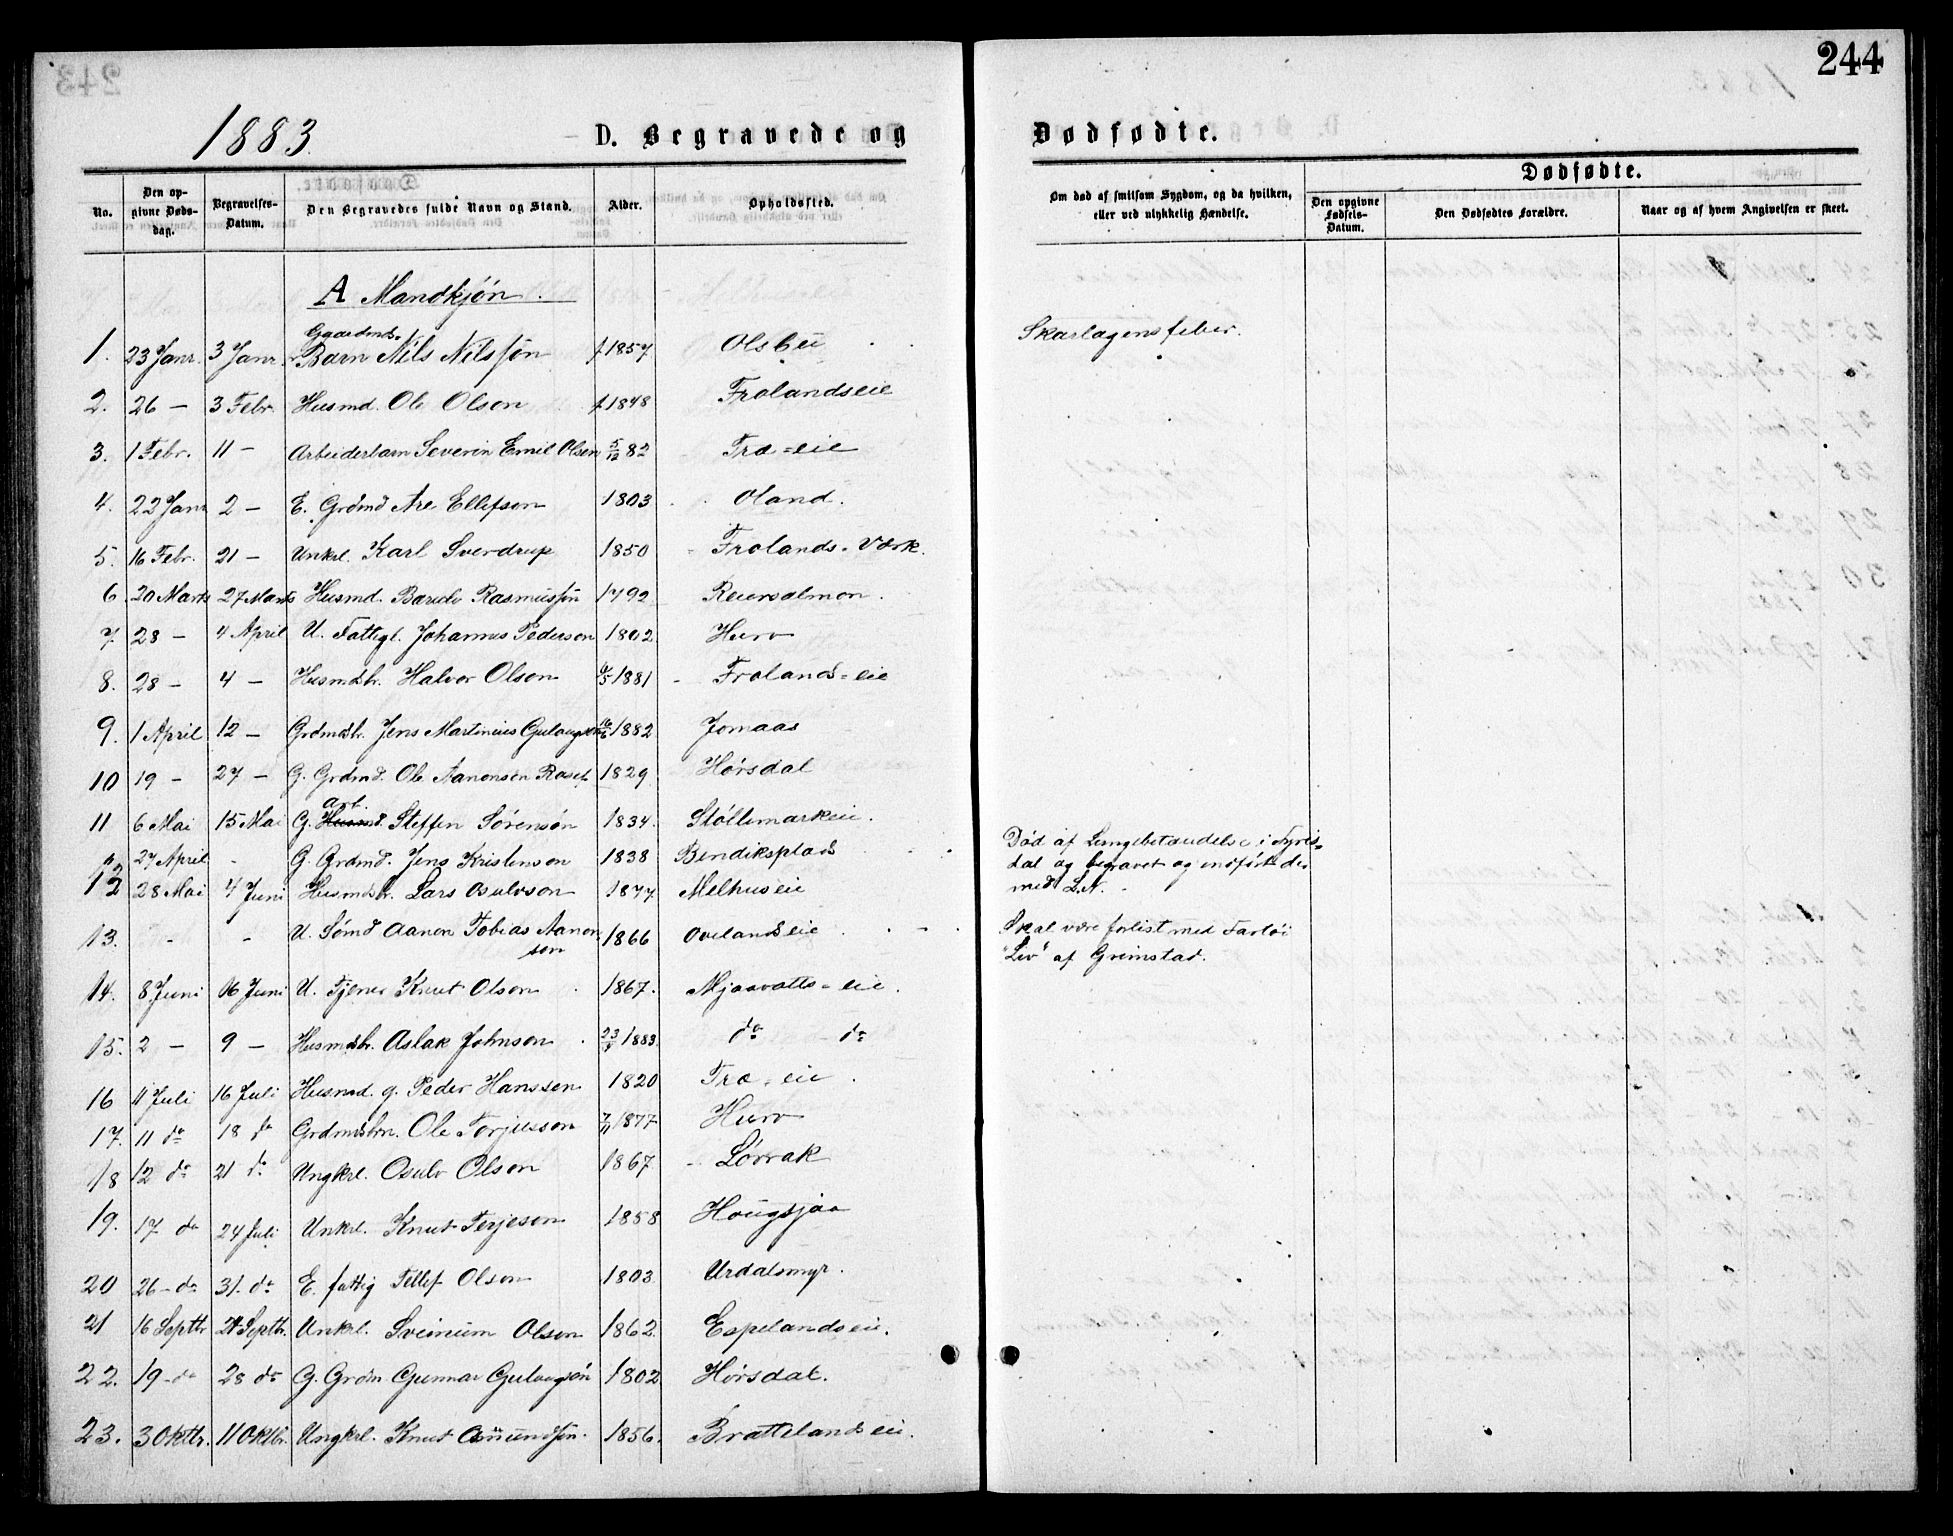 244
1883.
D. Begravede og Dødfødte.
Dødfødte.
No. Den opgivne Dødsdag. Begravelses-Datum. Den Begravedes fulde Navn og Stand. Alder. Opholdssted. Om død af smitsom Sygdom, og da hvilken, eller ved ulykkelig Hændelse. Den opgivne Fødsels-Datum. Den Dødfødtes Forældre. Naar og af hvem Angivelsen er skeet.
A Mandkjøn.
Gaardmds.
1. 23 Janr. 3 Janr. Barn Nils Nilssøn 1857 Olsbu Skarlagensfeber.
2. 26 — 3 Febr. Husmd. Ole Olson 1848 Frolandseie
3. 1 Febr. 11 — Arbeiderbarn Severin Emil Olsen 5/12 82 Træ-eie
4. 22 Janr 2 — E. Grdmd Are Ellefson 1803 Oland.
5. 16 Febr. 21 — Unkrl. Karl Sverdrup 1850 Frolands-Værk.
6. 20 Marts 27 Marts Husmd. Rasmussøn 1792
7. 28 — 4 April U. Fattigl. Johannes Pederson 1802 Hurv
8. 28 — 4 — Husmdbr. Halvor Olson 1881 Frolands-eie
9. 1 April 12 — Grdmdbr. Jens Martinius 1882 Jomaas
10 19 — 27 — G. Grdmd. Ole Aanonsen 1829 Hørsdal
Arb.
11 6 Mai 15 Mai G. Husmd. Steffen Sørensøn 1834.
27 April - G. Grdmd. Jens Kristenson 1838 Bendiksplads Død af Lungebetændelse i Nyrisdal og begravet og indført der med L.N.
12 28 Mai 4 Juni Husmdbr. Lars Osulvson 1877. Melhuseie
13. - - U. Sømd Aanon Tobias Aanonson 1866 Ovelandseie Skal være forlist med Fartøi "Liv" af Grimstad.
14. 8 Juni 16 Juni U. Tjener Knut Olson 1867. Mjaavatts-eie.
15. 2 — 9 — Husmdbr. Aslak Johnson 1883. do do
16 11 Juli 16 Juli Husmd. g. Peder Hanssen 1820 Træ-eie
17. 11 do 18 do Grdmdsbrn. Ole Torjusson 7/11 1877 Hurv
18 12 do 21 do Ungkrl. Osulv Olson 1867 Lørrak
19. 17 do 24 Juli Unkrl. Knut Terjeson 1858 Hougsjaa
20 26 - do 31. do E. fattig Tellef Olson 1803 Urdalsmyr.
21 16 Septbr 21 Septbr. Unkrl. Sveinum Olson 1862. Espelandseie.
22. 19 - do 28 do G. Grdm Gunnar Gulaugsøn 1802 Hørsdal.
23. 3 Oktbr. 11 Oktbr. Ungkrl. Knut Amundsøn. 1856. Brattelandseie.